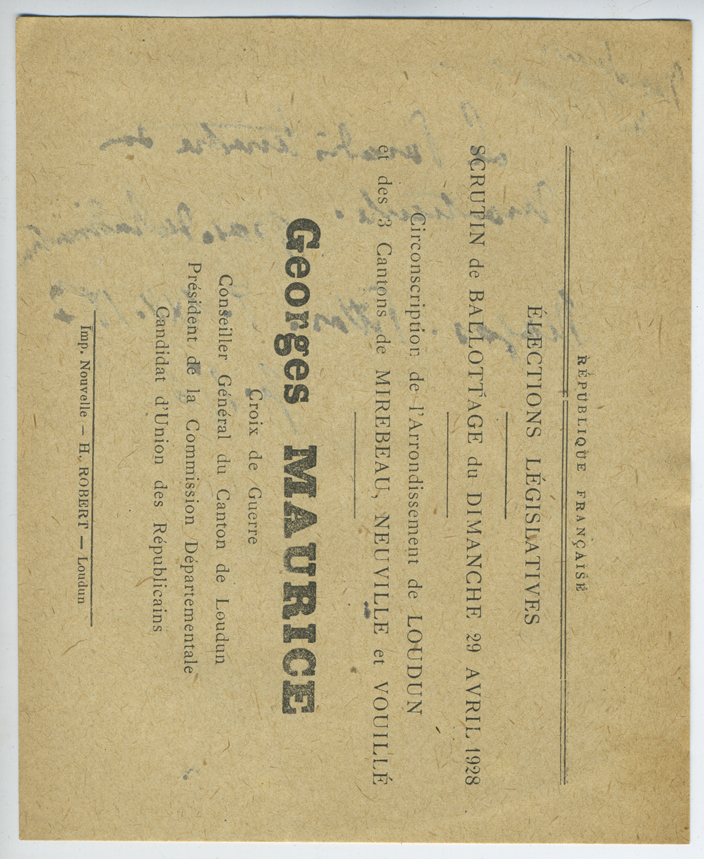 RÉPUBLIQUE FRANÇAISE
ÉLECTIONS LÉGISLATIVES
SCRUTIN de BALLOTTAGE du DIMANCHE 29 AVRIL 1928
Circonscription de l'Arrondissement de LOUDUN
et des 3 Cantons de MIREBEAU, NEUVILLE et VOUILLÉ
Georges MAURICE
Croix de Guerre
Conseiller Général du Canton de Loudun
Président de la Commission Départementale
Candidat d'Union des Républicains
Imp. Nouvelle — H. ROBERT — Loudun